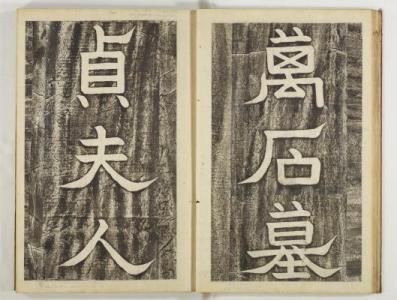 萬石墓
貞夫人